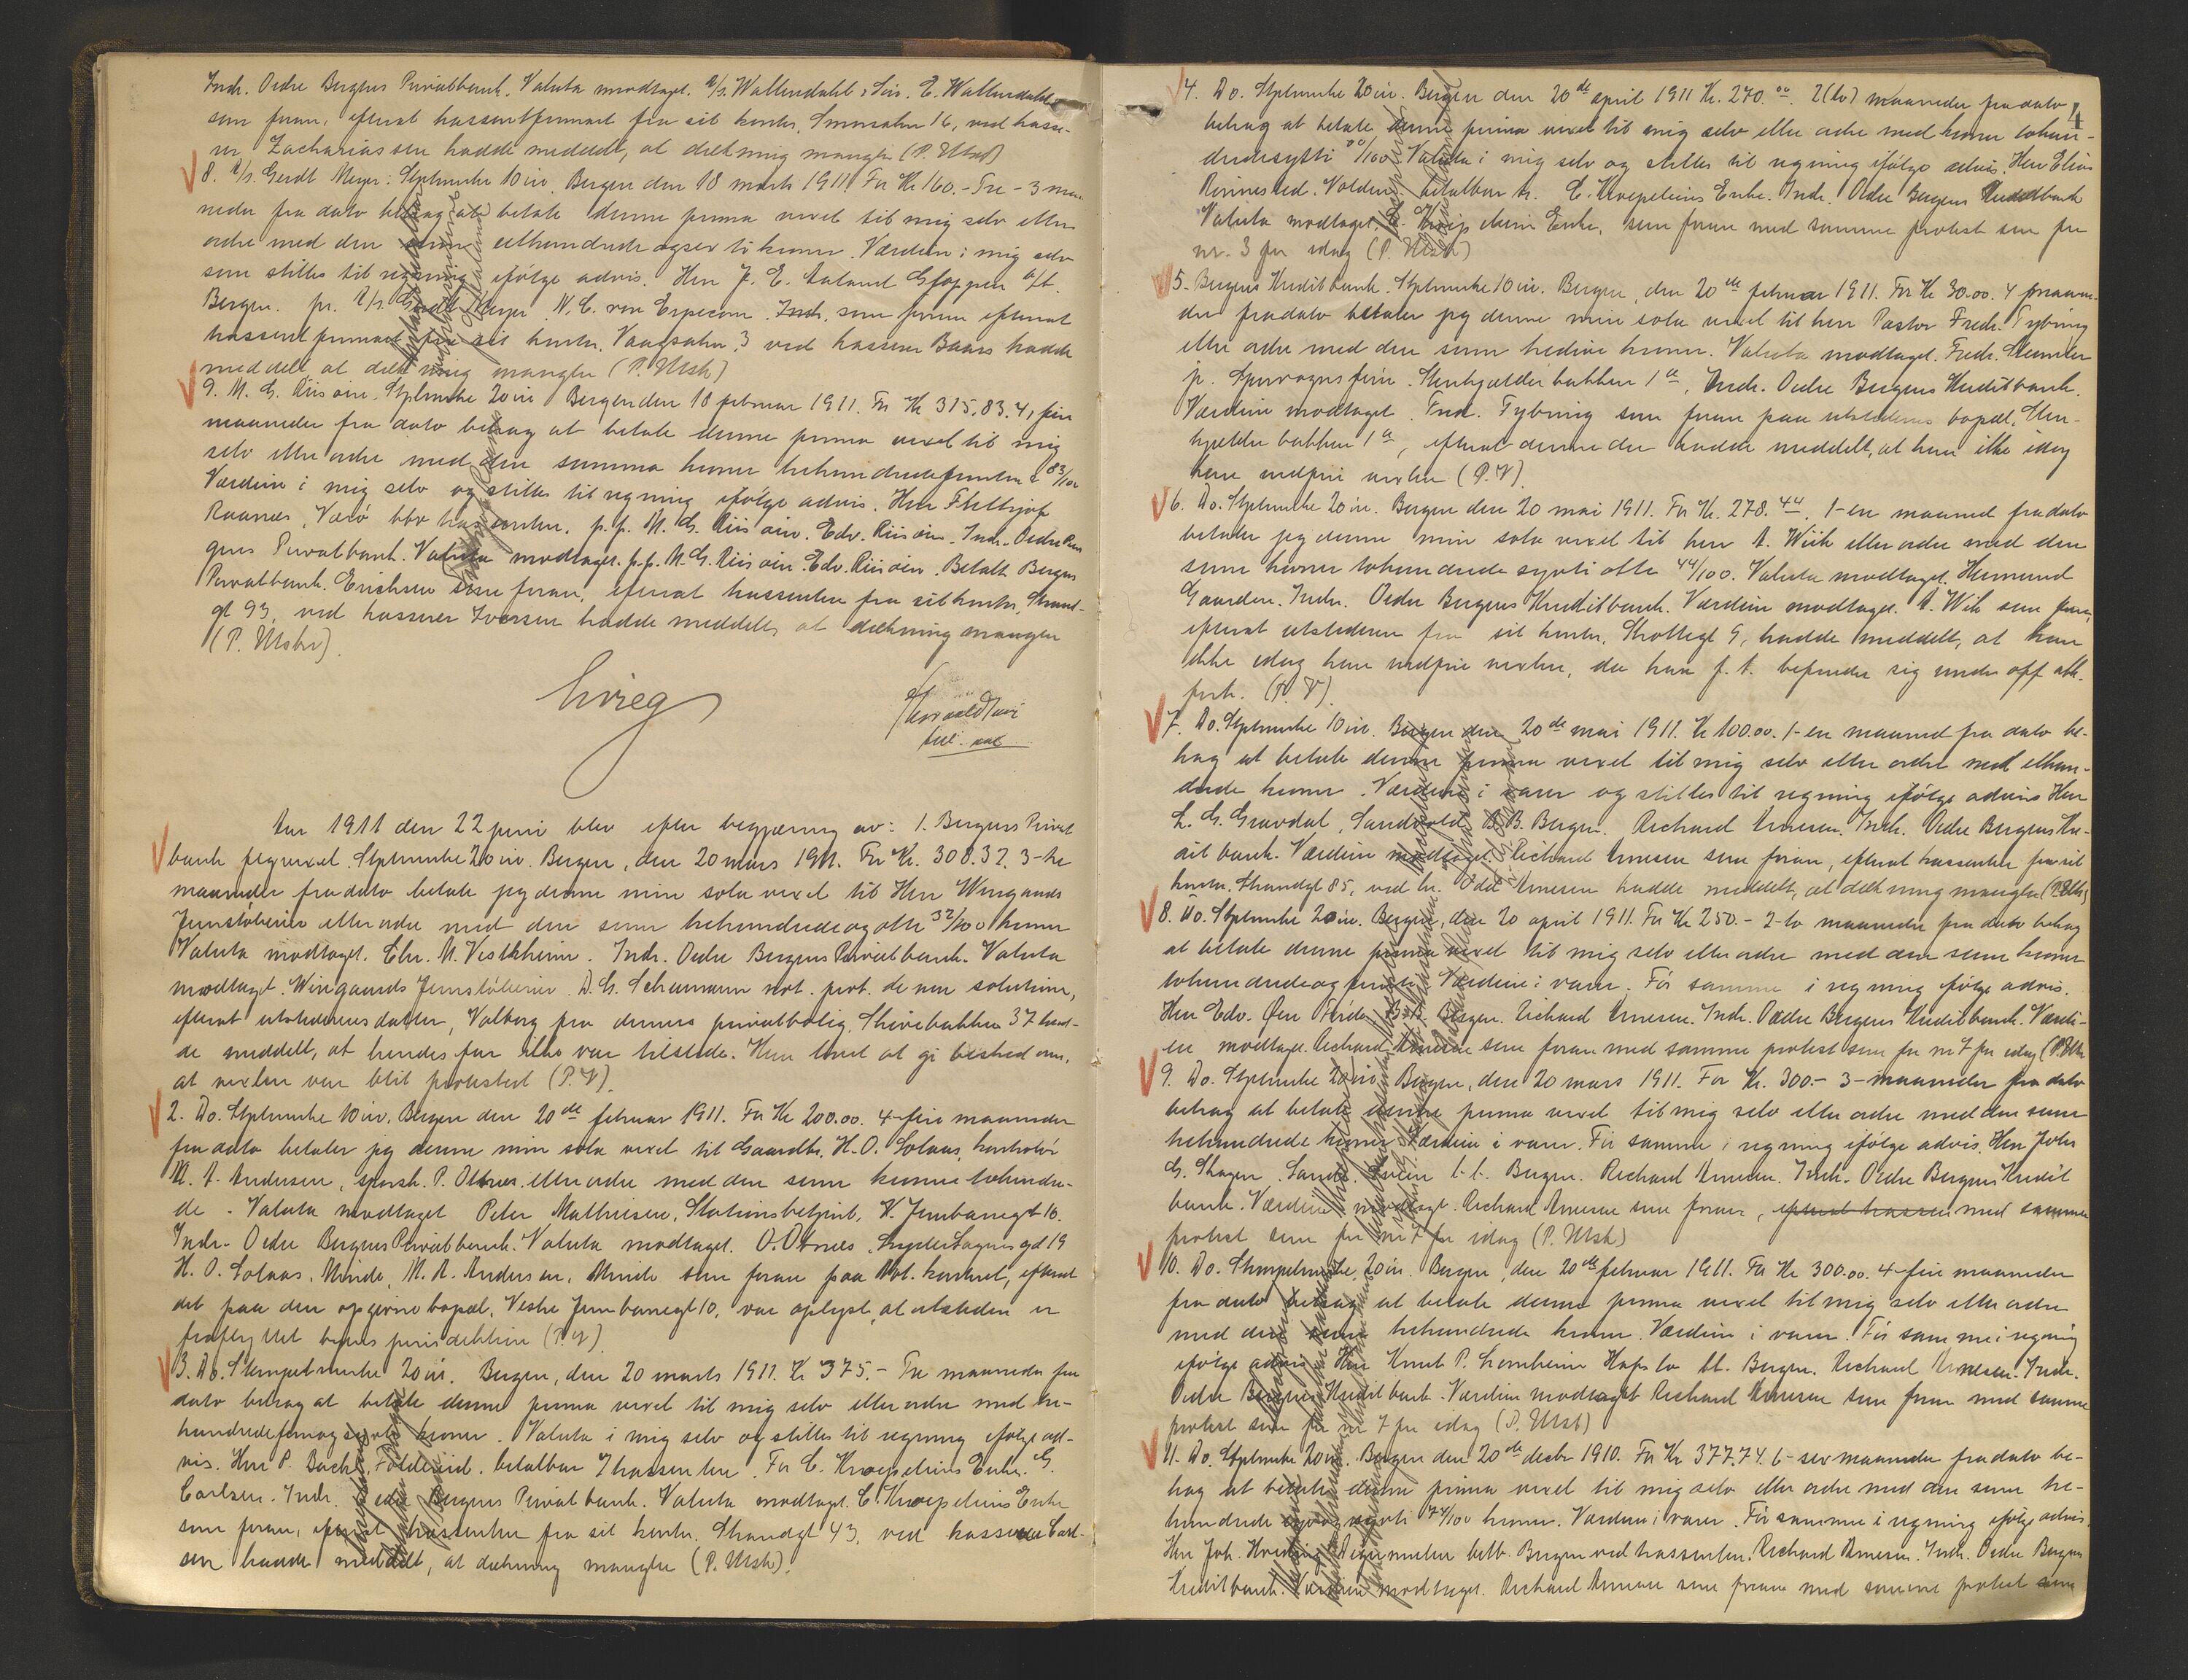 Indr. Ordre Bergens Privatbank. Valuta modtaget. A/S. Wallendahl & Søn. E. Wallendahl
som foran, efterat trassentfirmaet fra sit kontor, Smørsalm. 16, ved kasse-
rer Zachariassen hadde meddelt, at dækning mangler (P. Mskr)
8. A/S. Gerdt Meyer: Stplmrke 10 øre. Bergen den 18 marts 1911. For Kr 160.- Tre - 3 maa-
neder fra dato behag at betale denne prima vexel til mig selv eller
ordre med den sum etthundrede og sexti kroner. Værdien i mig selv
som stilles til regning ifølge advis. Herr J. E. Aaland Gloppen b/t.
Bergen. pr. A/S. Gerdt Meyer W. C. von Erpecom. Indr. som foran efterat
trassentfirmaet fra sit kontor. Vaagsalm. 3 ved kasserer Baars hadde
meddelt at dækning mangler (P. Mskr)
9. M. G. Riisøen. Stplmrke 20 øre Bergen den 18 februar 1911. For Kr 315,83. 4, fire
maaneder fra dato behag at betale denne prima vexel til mig
selv eller ordre med den summa kroner trehundredefemten & 83/100
Værdien i mig selv og stilles til regning ifølge advis. Herr Fhilhjof
Raanes, Værø bbr trassenten. p.p. M. G. Riisøen. Edv. Riisøen. Indr. Ordre Ber-
gens Privatbank. Valuta modtaget. p.p. M. G. Riisøen. Edv. Riisøen. Betalt Bergens
Privatbank. Erichsen som foran, efterat trassenten fra sit kontor, Strand-
gt 93, ved kasserer Iversen hadde meddelt, at dækning mangler
(P. Mskr).
Aar 1911 den 22 juni blev efter begjæring av: 1. Bergens Privat
bank fyr vexel. Stplmrke 20 øre. Bergen, den 20 mars 1911. For Kr. 308.32. 3-tre
maaneder fra dato betale jeg denne min sola vexel til Herr Wingaards
Jernstøberier eller ordre med den sum trehundredeogotte 32/100 kroner
Valuta modtaget. Chr. M. Vestrheim. Indr. Ordre Bergens Privatbank. Valuta
modtaget. Wingaards Jernstøberier. D. G. Schumann not. prot. de non solutione,
efterat utstederens datter, Valborg fra dennes privatbolig, Skivebakken 37 had-
de meddelt, at hendes far ikke var tilstede. Hun lovet at gi besked om,
at vexlen var blit protestert (P.V).
2. Do. Stplmrke 10 øre. Bergen den 20de februar 1911. For Kr 200.00. 4-fire maaneder
fra dato betaler jeg denne min sola vexel til Gaardbr. H. O. Solaas, kontrolør
M. A. Andersen, sporsk. P. Otnes eller ordre med den sum kroner tohundre-
de. Valuta modtaget Peter Mathiesen, Stationsbetjent, V. Jernbanegt 10.
Indr. Ordre Bergens Privatbank. Valuta modtaget. O. Otnes
H. O. Solaas, Minde, M. A. Andersen, Minde som foran paa Not. kontoret, efterat
det paa den opgivne bopæl, Vestre Jernbanegt 10, var oplyst, at utsteder er
fraflyttet byens jurisdiktion (P.V).
3. Do. Stempelmerke 20 ør. Bergen, den 20 marts 1911. Kr 375.- Tre maaneder fra
dato behag at betale denne prima vexel til mig selv eller ordre med tre-
hundredefemogsytti kroner. Valuta i mig selv og stilles til regning ifølge ad-
vis. Herr P. Bache, Foldereid, betalbar J trassenten. For C. Kroepeliens Enke. G.
Carlsen. Indr. Ordre Bergens Privatbank. Valuta modtaget. C. Kroepeliens Enke
som foran, efterat trassenten fra sit kontor. Strandgt 43, ved kasserer Carl-
sen hadde meddelt, at dækning mangler (P. Mskr).
4
4. Do. Stplmrke 20 øre. Bergen den 20de april 1911 Kr. 270.00. 2(to) maaneder fra dato
behag at betale denne prima vexel til mig selv eller ordre med kroner tohun-
dredesytti 00/100 Valuta i mig selv og stilles til regning ifølge advis. Herr Elias
Rimestad. Volden. betalbar tr. C. Kroepeliens Enke. Indr. Ordre Bergens Kreditbank
Valuta modtaget. C. Kroepeliens Enke, som foran med samme protest som for
nr. 3 for idag (P. Mskr)
5. Bergens Kreditbank. Stplmrke 10 øre. Bergen, den 20de februar 1911. For Kr 30.00. 4 maane-
der fra dato betaler jeg denne min sola vexel til herr Pastor Fredr. Tybring
eller ordre med den sum tredive kroner. Valuta modtaget. Fredr.
p. Sporvognsfører. Stenkjælderbakken 1a, Indr. Ordre Bergens Kreditbank.
Værdien modtaget. Fred. Tybring som foran paa utstederens bopæl, Sten-
kjælderbakken 1a, efterat denne der hadde meddelt, at han ikke idag
kan indfri vexlen (P.V).
6. Do. Stplmrke 20 øre. Bergen den 20 mai 1911. For Kr. 278.44. 1-en maaned fra dato
betaler jeg denne min sola vexel til herr A. Wiik eller ordre med den
sum kroner tohundrede sytti otte 44/100. Valuta modtaget. Hermund
Gaarden. Indr. Ordre Bergens Kreditbank. Værdien modtaget. A. Wiik som foran,
efterat utstederen fra sit kontor, Skottegt 9, hadde meddelt, at han
ikke idag kan indfri vexlen, da han f. t. befinder sig under off. akk-
forh. (P.V).
7. Do. Stplmrke 10 øre. Bergen den 20de mai 1911. Kr 100.00. 1-en maaned fra dato be-
hag at betale denne prima vexel til mig selv eller ordre med ethun-
drede kroner. Værdien i varer og stilles til regning ifølge advis Herr
L. G. Gravdal, Sandvold B.B. Bergen. Richard Arnesen. Indr. Ordre Bergens Kre-
ditbank. Værdien modtaget. Richard Arnesen som foran, efterat trassenten fra sit
kontor. Strandgt 85, ved hr. Odd Arnesen hadde meddelt, at dækning mangler (P. Mskr)
8. Do. Stplmrke 20 øre. Bergen, den 20 april 1911. For Kr 250.- 2-to maaneder fra dato behag
at betale denne prima vexel til mig selv eller ordre med den sum kroner
tohundredeogfemti. Værdien i varer. Før samme i regning ifølge advis.
Herr Edv. Øen Førde B.B. Bergen. Richard Arnesen. Indr. Ordre Bergens Kreditbank. Værdi-
en modtaget. Richard Arnesen som foran med samme protest som for nr 7 for idag (P. Mskr
9. Do. Stplmrke 20 øre, Bergen, den 20 mars 1911. For Kr. 300.- 3-maaneder fra dato
behag at betale denne prima vexel til mig selv eller ordre med den sum
trehundrede kroner. Værdien i varer. Før samme i regning ifølge advis. Herr Johs
G. Skagen. Sande b.b. Bergen. Richard Arnesen. Indr. Ordre Bergens Kredit
bank. Værdien modtaget. Richard Arnesen som foran, efterat trassen med samme
protest som for nr 7 for idag (P. Mskr)
10. Do. Stempelmrke 20 øre. Bergen, den 20de februar 1911. For Kr 300.00. 4-fire maaneder
fra dato behag at betale denne prima vexel til mig selv eller ordre
med den sum trehundrede kroner. Værdien i varer. Før samme i regning
ifølge advis Herr Knut P. Lemheim Hafslo bt. Bergen. Richard Arnesen. Indr.
Ordre Bergens Kreditbank. Værdien modtaget Richard Arnesen som foran med samme
protest som for nr 7 for idag (P. Mskr)
11. Do. Stplmrke 20 øre. Bergen den 20de decbr 1910. For Kr 377,74. 6-sex maaneder fra dato be-
hag at betale denne prima vexel til mig selv eller ordre med den sum tre-
hundrede syvogsytti 74/100 kroner. Værdien i varer. Før samme i regning ifølge advis
Herr Joh. betb. Bergen ved trassenten. Richard Arnesen. Indr. Ordre Bergens
Kreditbank. Værdien modtaget. Richard Arnesen som foran med samme protest som